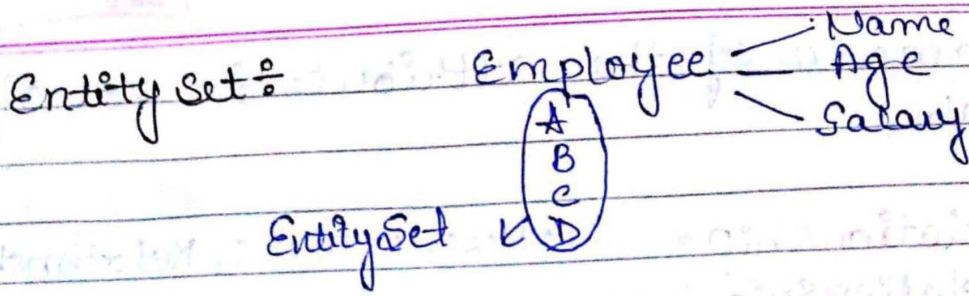 Entity Set :-
Employee
Name
Age
Salary
A
B
C
D
Entity Set